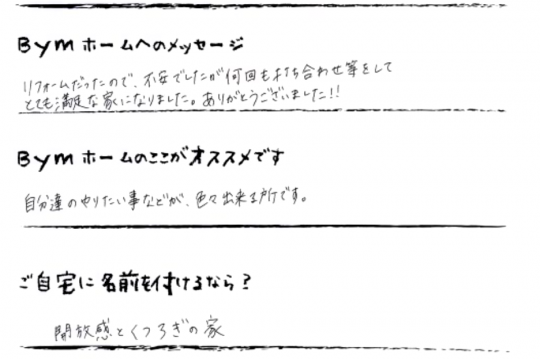 Bymホームへのメッセージ
リフォームだったので、不安でしたが何回も打ち合わせ等をして
とても満足な家になりました。ありがとうございました!!
Bymホームのここがオススメです
自分達のやりたい事などが、色々出来る所です。
ご自宅に名前を付けるなら?
開放感とくつろぎの家